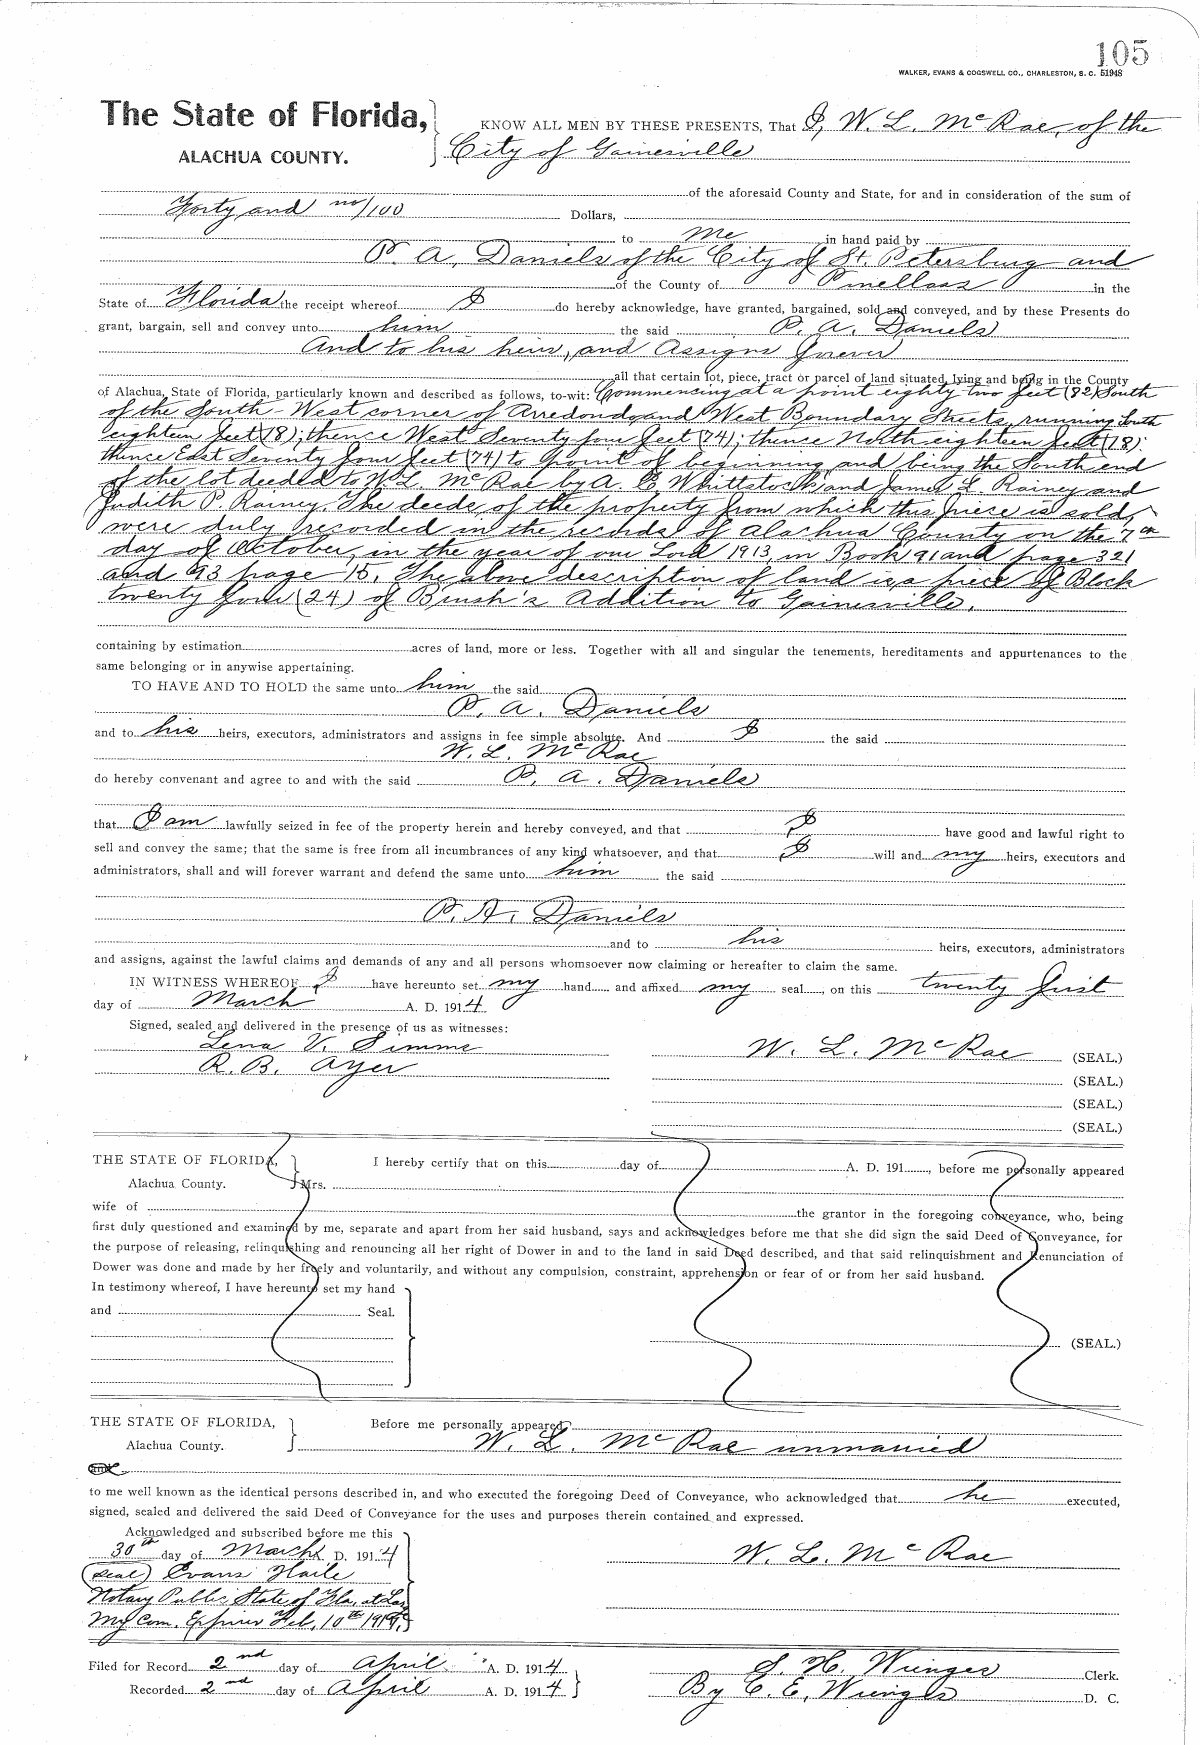 105
WALKER, EVANS & COGSWELL CO., CHARLESTON, S. C. 51948
The State of Florida,
ALACHUA COUNTY.
KNOW ALL MEN BY THESE PRESENTS, That I, W. L. McRae, of the
City of Gainesville
of the aforesaid County and State, for and in consideration of the sum of
Forty and no/100 Dollars,
to me in hand paid by
P. A. Daniels of the City of St. Petersburg and
of the County of Pinellas in the
State of Florida the receipt whereof I do hereby acknowledge, have granted, bargained, sold and conveyed, and by these Presents do
grant, bargain, sell and convey unto him the said P. A. Daniels
And to his heirs, and Assigns forever
all that certain lot, piece, tract or parcel of land situated, lying and being in the County
of Alachua, State of Florida, particularly known and described as follows, to-wit: Commencing at a point eighty two feet (82) South
of the South-West corner of Arredondo and West Boundary Streets, running South
eighteen feet (18); thence West Seventy four feet (74); thence North eighteen feet (18):
thence East Seventy four feet (74) to point of beginning and being the South end
of the lot deeded to W. L. McRae by A. C Whittstock and James L. Rainey and
Judith P. Rainey. The deeds of the property from which this piece is sold,
were duly recorded in the records of Alachua County on the 7th
day of October, in the year of our Lord 1913, in Book 91 and page 321
and 93 page 15. The above description of land is a piece of Block
twenty four (24) of Brush's Addition to Gainesville.
containing by estimation acres of land, more or less. Together with all and singular the tenements, hereditaments and appurtenances to the
same belonging or in anywise appertaining.
TO HAVE AND TO HOLD the same unto him the said
P. A. Daniels
and to his heirs, executors, administrators and assigns in fee simple absolute. And I the said
W. L. McRae
do hereby convenant and agree to and with the said P. A. Daniels
that I am lawfully seized in fee of the property herein and hereby conveyed, and that I have good and lawful right to
sell and convey the same; that the same is free from all incumbrances of any kind whatsoever, and that I will and my heirs, executors and
administrators, shall and will forever warrant and defend the same unto him the said
P. A. Daniels
and to his heirs, executors, administrators
and assigns, against the lawful claims and demands of any and all persons whomsoever now claiming or hereafter to claim the same.
IN WITNESS WHEREOF I have hereunto set my hand and affixed my seal, on this twenty first
day of March A. D. 1914
Signed, sealed and delivered in the presence of us as witnesses:
Lena V. Simms
R. B. Ayer
W. L. McRae (SEAL.)
(SEAL.)
(SEAL.)
(SEAL.)
THE STATE OF FLORIDA,
Alachua County.
I hereby certify that on this day of A. D. 191, before me personally appeared
Mrs.
wife of the grantor in the foregoing conveyance, who, being
first duly questioned and examined by me, separate and apart from her said husband, says and acknowledges before me that she did sign the said Deed of Conveyance, for
the purpose of releasing, relinquishing and renouncing all her right of Dower in and to the land in said Deed described, and that said relinquishment and Renunciation of
Dower was done and made by her freely and voluntarily, and without any compulsion, constraint, apprehension or fear of or from her said husband.
In testimony whereof, I have hereunto set my hand
and Seal.
(SEAL.)
THE STATE OF FLORIDA,
Alachua County.
Before me personally appeared
W. L. McRae unmarried
and
to me well known as the identical persons described in, and who executed the foregoing Deed of Conveyance, who acknowledged that he executed,
signed, sealed and delivered the said Deed of Conveyance for the uses and purposes therein contained and expressed.
Acknowledged and subscribed before me this
30th day of March A. D. 1914
(Seal) Evans Haile
Notary Public State of Fla, at Lar
My Com. Expires Feb, 10th
W. L. McRae
Filed for Record 2nd day of April A. D. 1914
Recorded 2nd day of April A. D. 1914
S. H. Wienges Clerk.
By C. E. Wienges D. C.